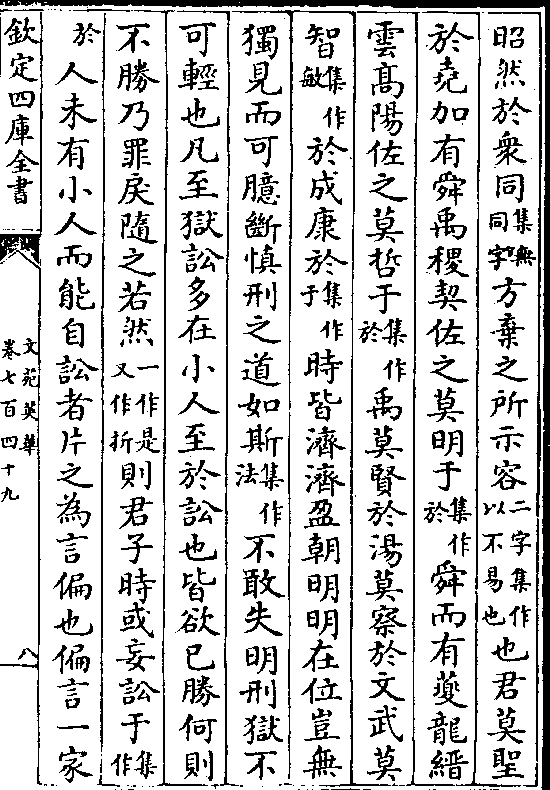 昭然於衆同集無同字方棄之所示容二字集作以不易也也君莫聖
於堯加有舜禹稷契佐之莫明于集作於舜而有夔龍縉
雲髙陽佐之莫哲于集作於禹莫賢於湯莫察於文武莫
智集作敏於成康於集作于時皆濟濟盈朝明明在位豈無
獨見而可臆斷慎刑之道如斯集作法不敢失明刑獄不
可輕也凡至獄訟多在小人至於訟也皆欲已勝何則
不勝乃罪戾隨之若然一作是又作折則君子時或妄訟于集作
於人未有小人而能自訟者片之為言偏也偏言一家
欽定四庫全書
文苑英華
卷七百四十九
八